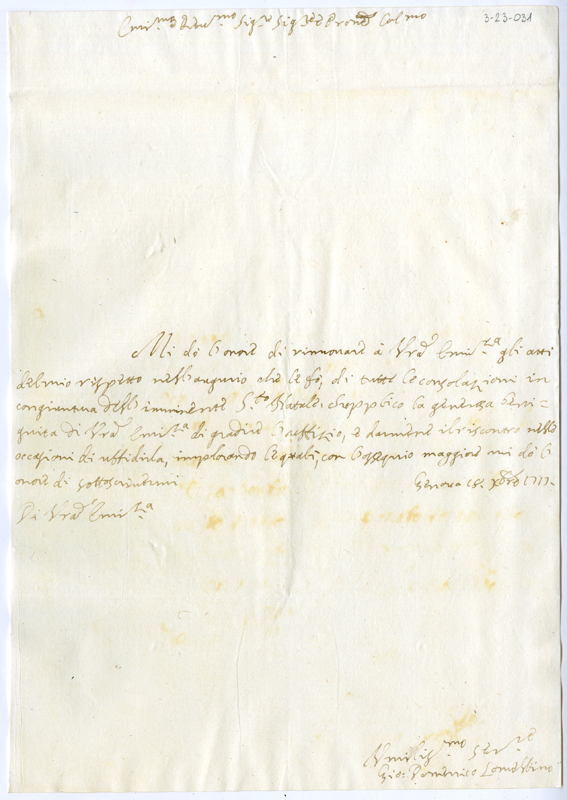 3-23-031
Emin.mo e Reu.mo Sig.re Sig.re e Pron. Col.mo
Mi dò l'onore di rinnouare à Vr̃a Emin.za gli atti
del mio rispetto nell'augurio che le fò, di tutte le consolazioni in
congiuntura dell'imminente S.to Natale; e supplico la generosa beni=
gnità di Vr̃a Emin.za di gradire l'uffizio, e darmene il riscontro nelle
occasioni di ubbidirla, implorando le quali, con ossequio maggiore mi dò l'
onore di sottoscriuermi Genova 18 Xbre 1717.
Di Vr̃a Emin.za
Vmiliss.mo Ser.re
Gio: Domenico